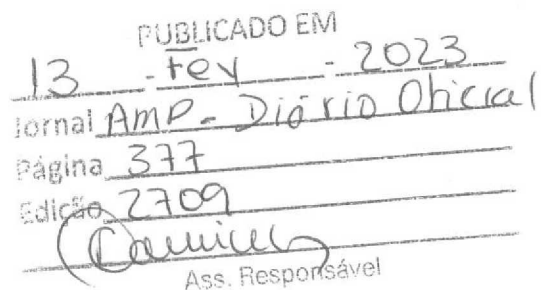 PUBLICADO EM
13 - Fev - 2023
Jornal AMP - Diário Oficial
Página 377
Edição 2709
Ass. Responsável